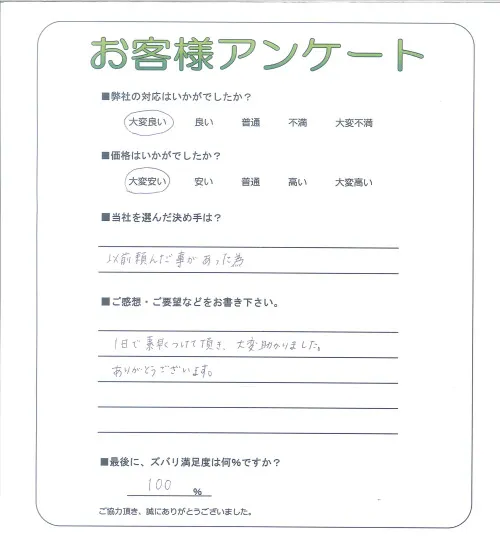 お客様アンケート
■弊社の対応はいかがでしたか？
大変良い 良い 普通 不満 大変不満
■価格はいかがでしたか？
大変安い 安い 普通 高い 大変高い
■当社を選んだ決め手は？
以前頼んだ事があった為
■ご感想・ご要望などをお書き下さい。
1日で素早くつけて頂き、大変助かりました。
ありがとうございます。
■最後に、ズバリ満足度は何%ですか？
100 %
ご協力頂き、誠にありがとうございました。